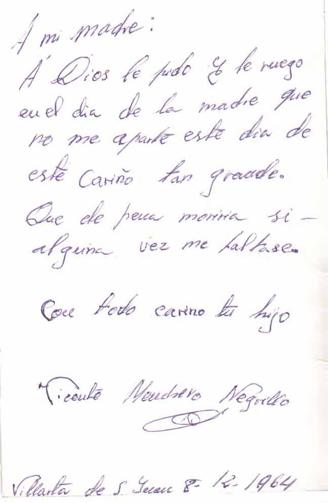 A mi madre:
A Dios le pido y le ruego
en el dia de la madre que
no me aparte este dia de
este cariño tan grande.
Que de pena moriria si-
alguna vez me faltase.
Con todo carino tu hijo
Vicente Negrillo
Villarta de S. Juan 8-12-1964